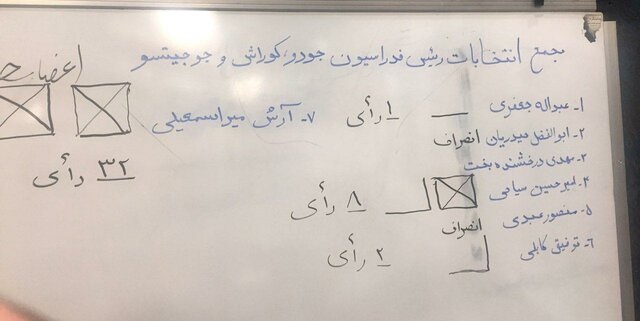 مجمع انتخابات رئیس فدراسیون جودو، کوراش و جوجیتسو
۱- عبداله جعفری ۱ رأی
۲- ابوالفضل میدریان انصراف
۳- مهدی درخشنده بخت
۴- امیرحسین سیامی ۸ رأی
۵- منصور عبدی انصراف
۶- توفیق کابلی ۲ رأی
۷- آرش میراسمعیلی
۳۲ رأی